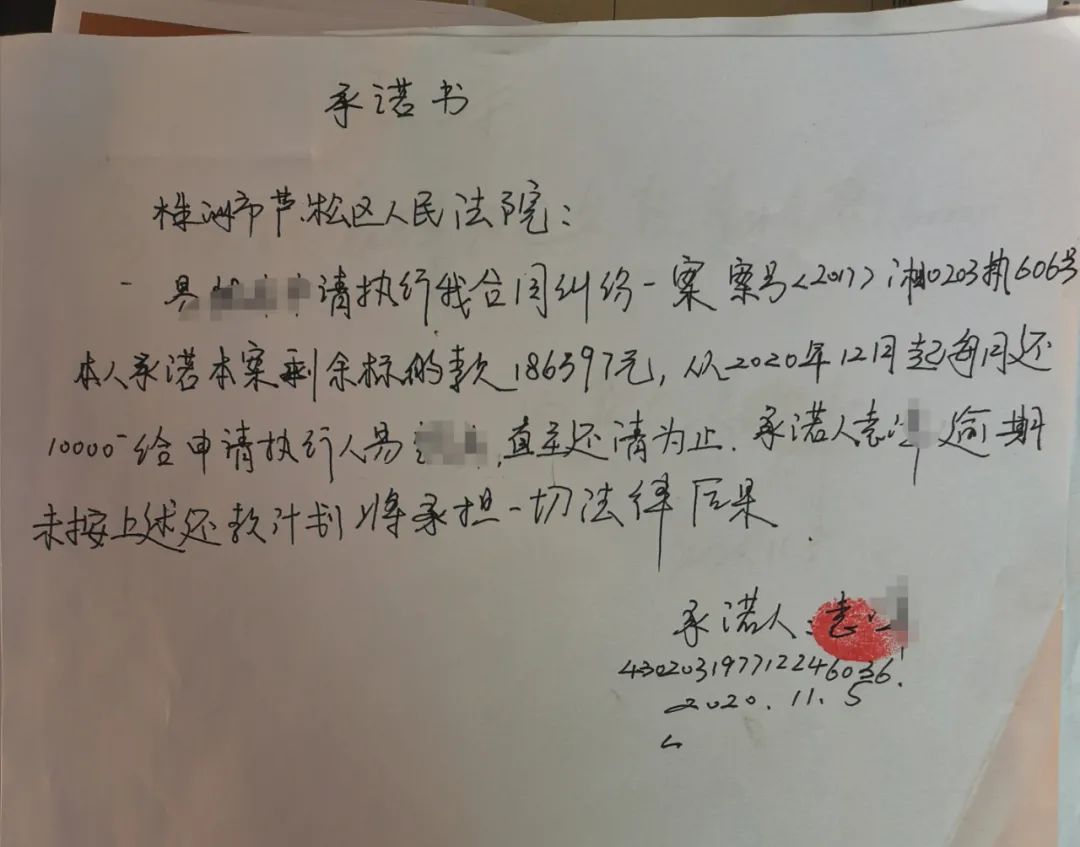 承诺书
株洲市芦淞区人民法院：
请执行我合同纠纷一案 案号<2017>湘0203执606号
本人承诺本案剩余标的款186397元，从2020年12月起每月还
10000-给申请执行人易，直至还清为止．承诺人袁逾期
未按上述还款计划将承担一切法律后果．
承诺人：袁
430203197712246036
2020.11.5